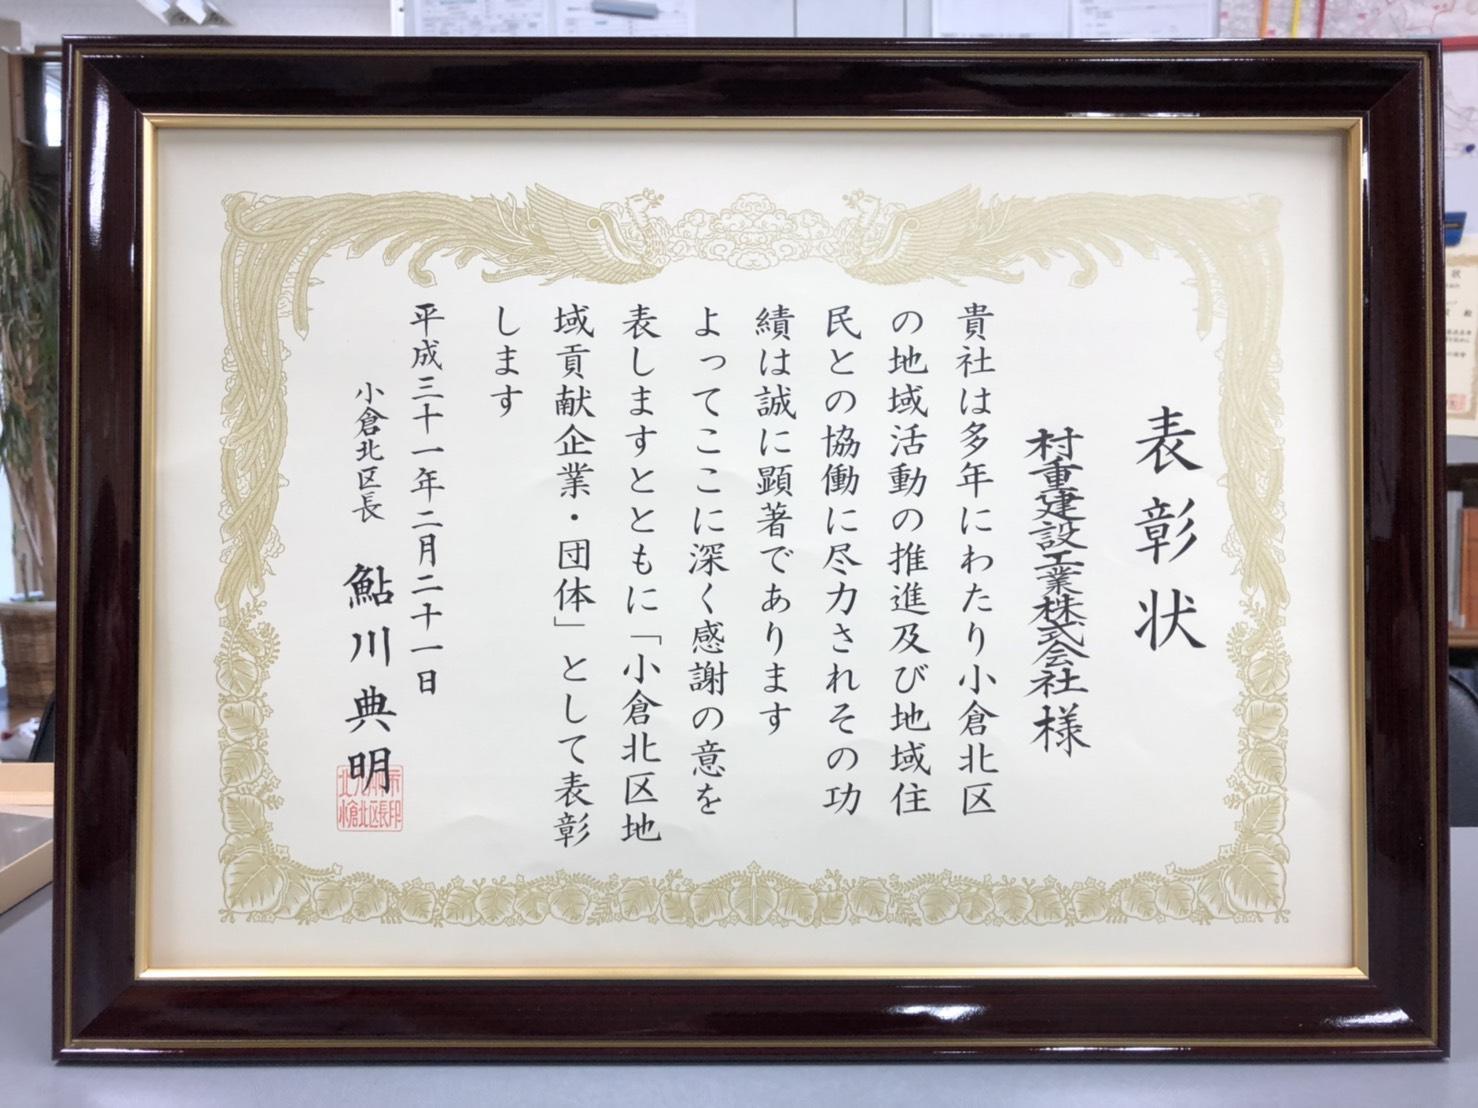 表彰状
村重建設工業株式会社様
貴社は多年にわたり小倉北区
の地域活動の推進及び地域住
民との協働に尽力されその功
績は誠に顕著であります
よってここに深く感謝の意を
表しますとともに「小倉北区地
域貢献企業・団体」として表彰
します
平成三十一年二月二十一日
小倉北区長 鮎川典明
北九州市
小倉北区長印